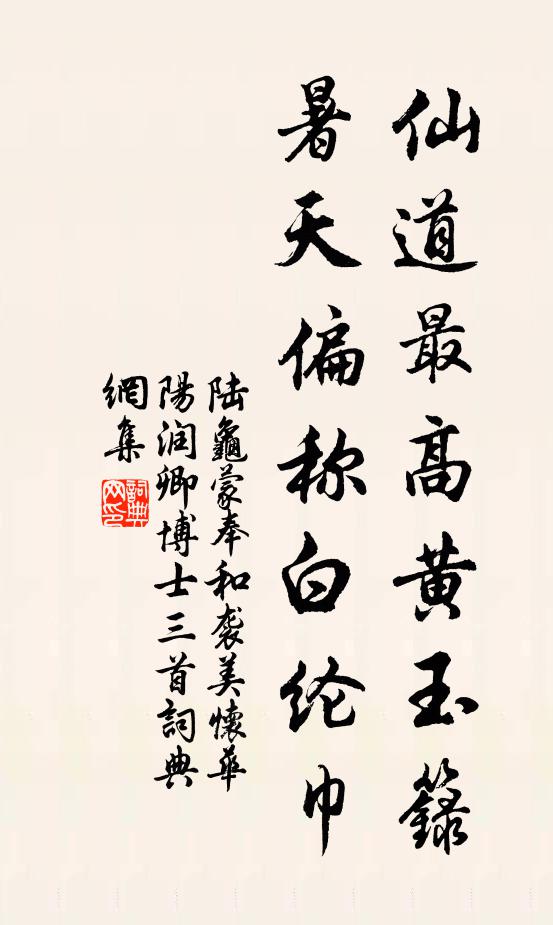 仙道最高黄玉籙
暑天偏称白纶巾
陆龜蒙奉和袭美懷華
陽润卿博士三首詞典
網集
詞典
网印